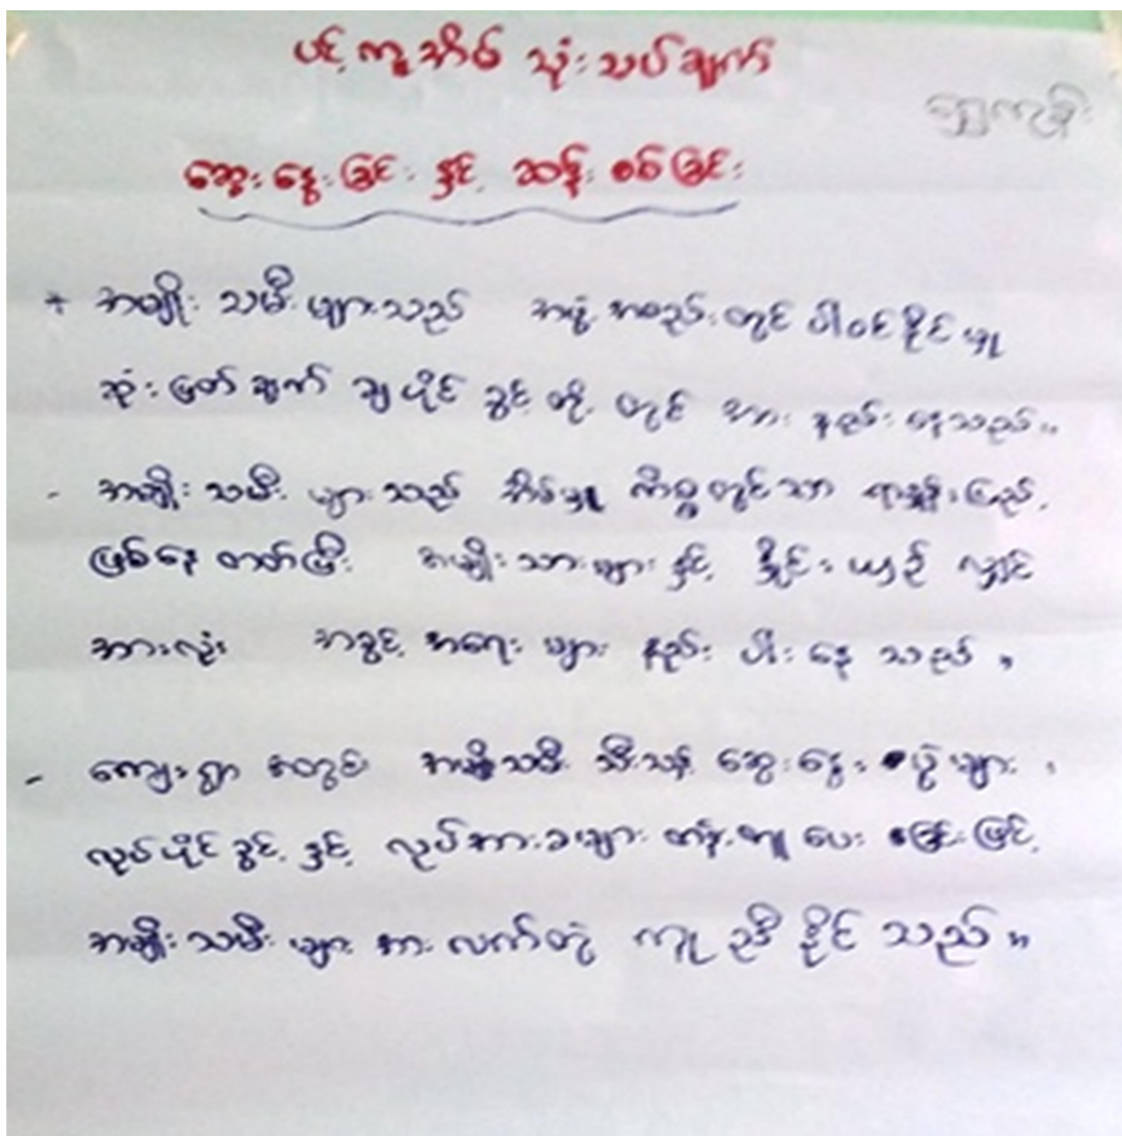 ပင့်ကူအိမ် သုံးသပ်ချက်
ရွှေကျန်း
ဆွေးနွေးခြင်း နှင့် ဆန်းစစ်ခြင်း
+ အမျိုးသမီးများသည် အဖွဲ့အစည်းတွင် ပါဝင်နိုင်မှု
ဆုံးဖြတ်ချက် ချပိုင်ခွင့်တို့တွင် အားနည်းနေသည်။
- အမျိုးသမီးများသည် အိမ်မှုကိစ္စတွင်သာ ရာနှုန်းပြည့်
ဖြစ်နေတတ်ပြီး အမျိုးသားများနှင့် နှိုင်းယှဉ်လျှင်
အားလုံး အခွင့်အရေးများ နည်းပါးနေသည်၊
- ကျေးရွာတွင် အမျိုးသမီး သီးသန့် ဆွေးနွေးပွဲများ၊
လုပ်ပိုင်ခွင့်နှင့် လုပ်အားခများ တန်းတူပေးခြင်းဖြင့်
အမျိုးသမီးများအား လက်တွဲ ကူညီနိုင်သည်။